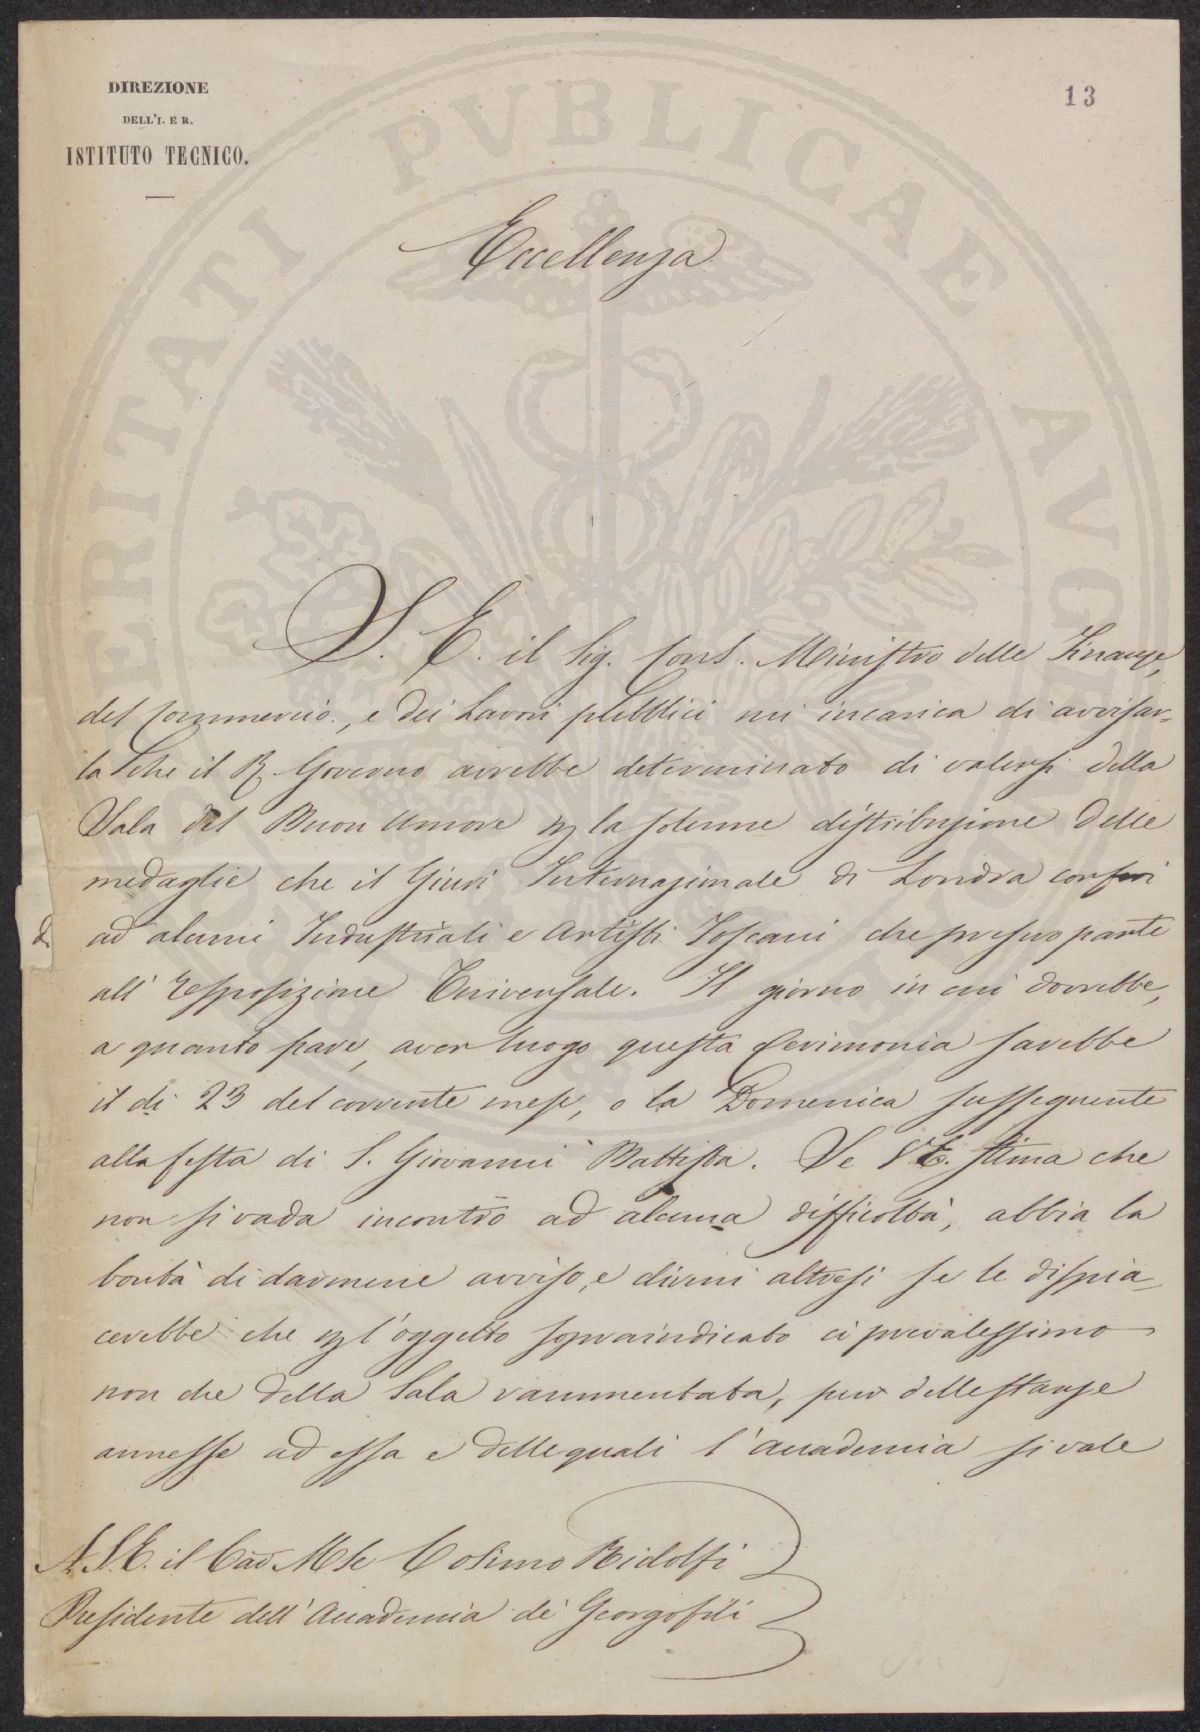 DIREZIONE
DELL'I. E R.
ISTITUTO TECNICO.
13
PROSPERITATI PVBLICAE AVGENDAE
Eccellenza
S. E. il Sig. Cons. Ministro delle Finanze,
del Commercio, e dei Lavori pubblici mi incarica di avvisar-
la che il R. Governo avrebbe determinato di valersi della
Sala del Buon Umore per la solenne distribuzione delle
medaglie che il Giurì Internazionale di Londra conferì
ad alcuni Industriali e Artisti Toscani che presero parte
all' Esposizione Universale. Il giorno in cui dovrebbe,
a quanto pare, aver luogo questa Cerimonia sarebbe
il dì 23 del corrente mese, o la Domenica susseguente
alla festa di S. Giovanni Battista. Se V.E. stima che
non si vada incontro ad alcuna difficoltà, abbia la
bontà di darmene avviso, e dirmi altresì se le dispia-
cerebbe che per l'oggetto sopraindicato ci prevalessimo
non che della Sala rammentata, pur delle stanze
annesse ad essa e delle quali l'Accademia si vale
A S.E. il Cav. Mse Cosimo Ridolfi
Presidente dell'Accademia de' Georgofili